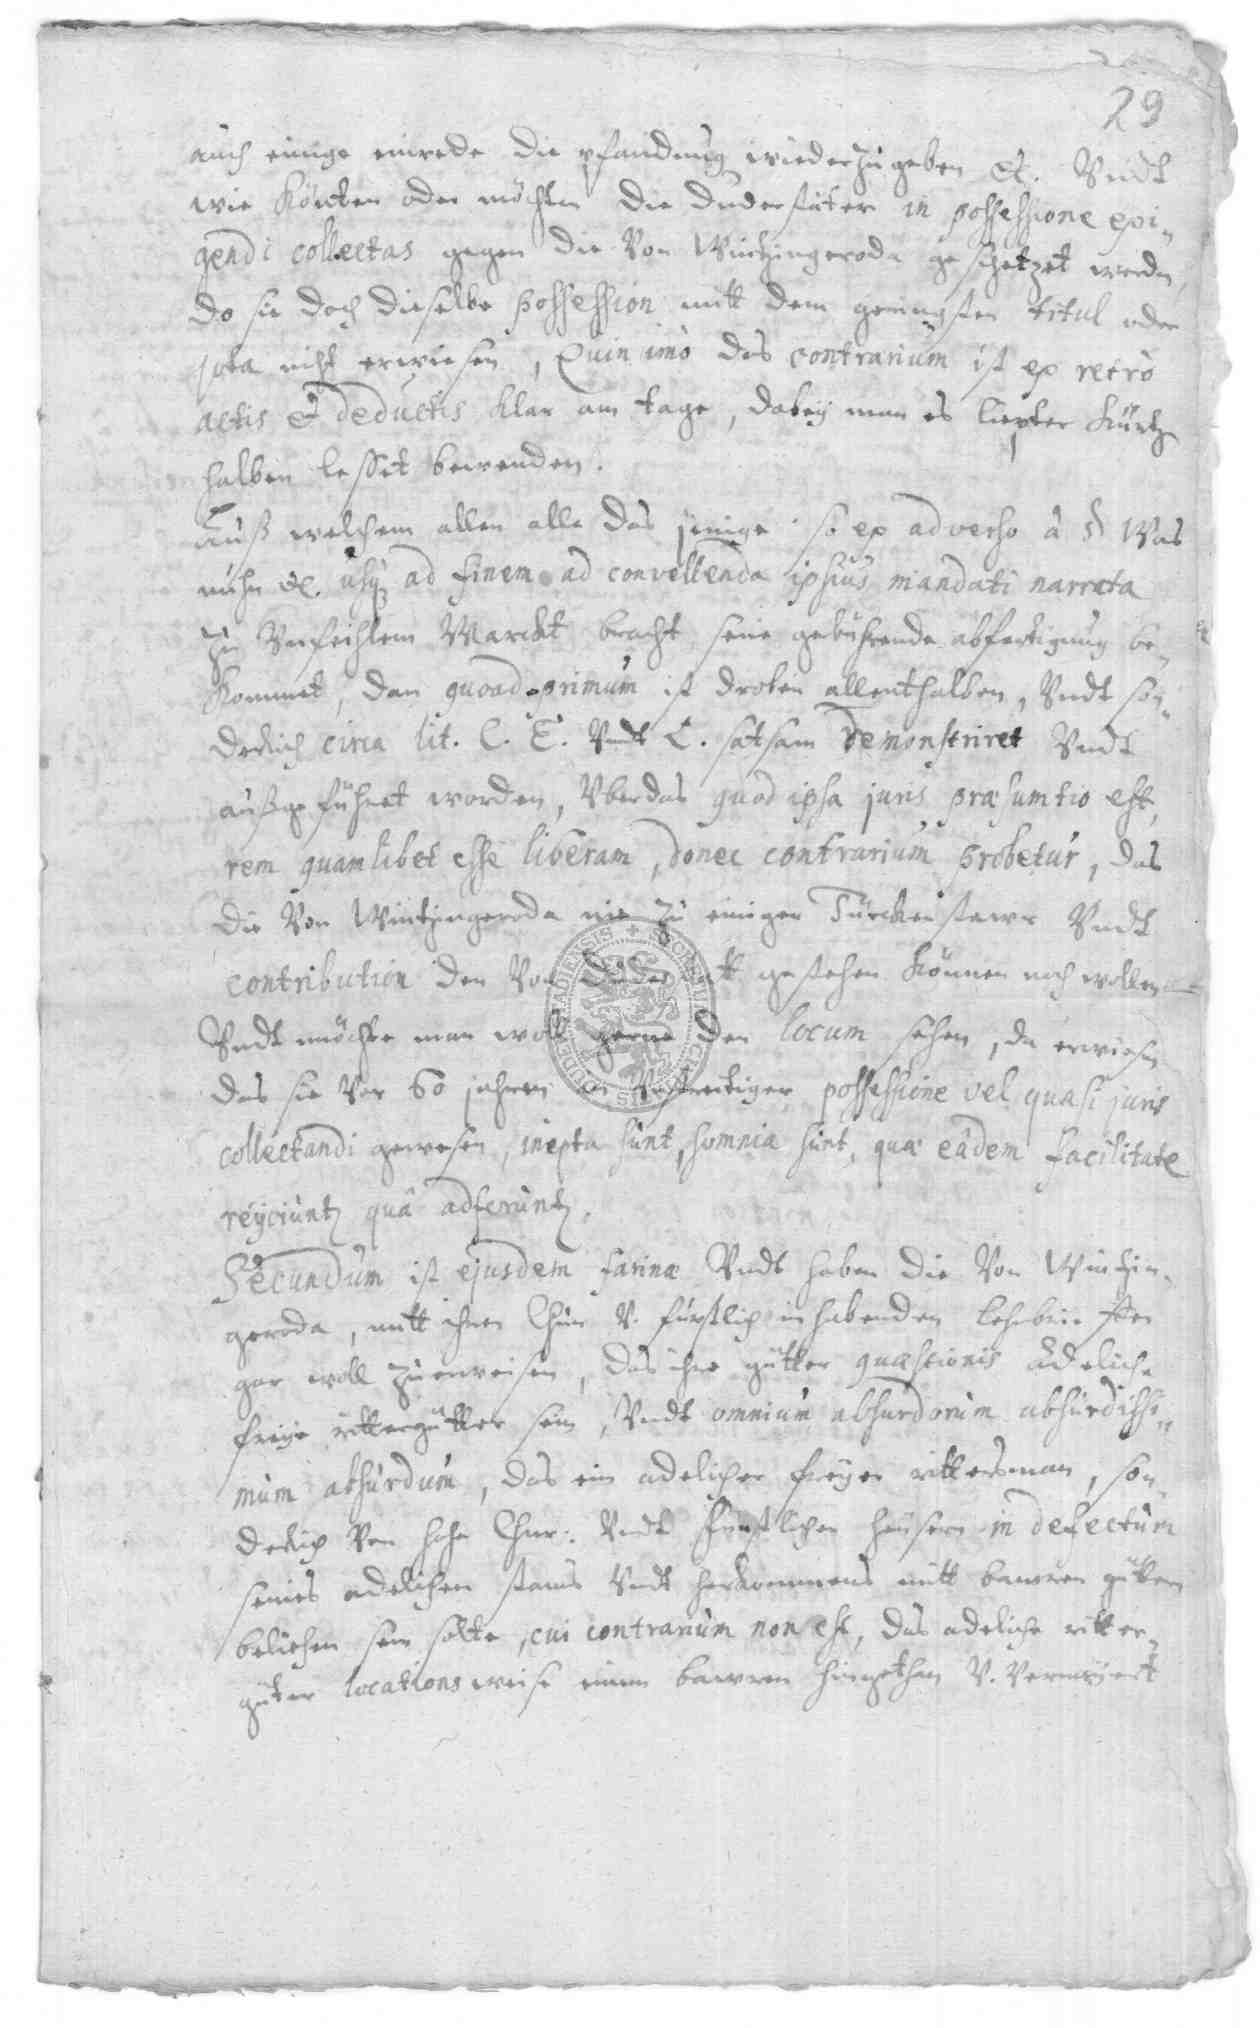 29
auch einige einrede die pfandung wiederzugeben etc. Vndt
wie könten oder möchten die duderstäter in possessione exi-
gendi collectas gegen die Von Wintzingeroda geschetzet werdn,
do sie doch dieselbe possession mitt dem geringsten titul oder
jota nicht erwiesen, Quin imò das contrarium ist ex retrò
actis et deductis klar am tage, dabeÿ man es liepter kürtz
halben lesset bewenden.
Auß welchem allen alle das jenige so ex adverso à § Was
nuhn etc. usq ad finem ad convellenda ipsius mandati narrata
zu Vnfeihlem Marckt bracht seine gebührende abfertigung be-
kommet, dan quoad primum ist droben allenthalben, Vndt son-
derlich circa lit. C. E. Vndt L. satsam demonstriret Vndt
außgeführet worden, Vberdas quod ipsa juris præsumtio est,
rem quamlibet esse liberam, donec contrarium probetur, das
die Von Wintzingeroda nie zu einiger Türckensteur Vndt
contribution den Von Duderstatt gestehen können noch wollen
Vndt möchte man woll gerne den locum sehen, da erwiesen
das sie Vor 60 jahren in Vnstreitiger possessione vel quasi juris
collectandi gewesen, inepta sunt, somnia sunt, quæ eâdem facilitate
reÿciuntz quâ adferuntz.
Secundum ist ejusdem farinæ Vndt haben die Von Wintzin-
geroda, mitt ihren Chur V. fürstlich inhabenden lehnbrieffen
gar woll zuerweisen, das ihre gütter quæstionis adeliche
freÿe rittergütter sein, Vndt omnium absurdorum absurdissi-
mum absurdum, das ein adelicher freÿer rittersman, son-
derlich Von hohe Chur: Vndt fürstlichen heusern in defectum
seines adelichen stams Vndt herkommens mitt bawren gütern
beliehen sein solte, cui contrarium non est, das adeliche ritter-
güter locations weise einem bawren hingethan V. Vermeÿert